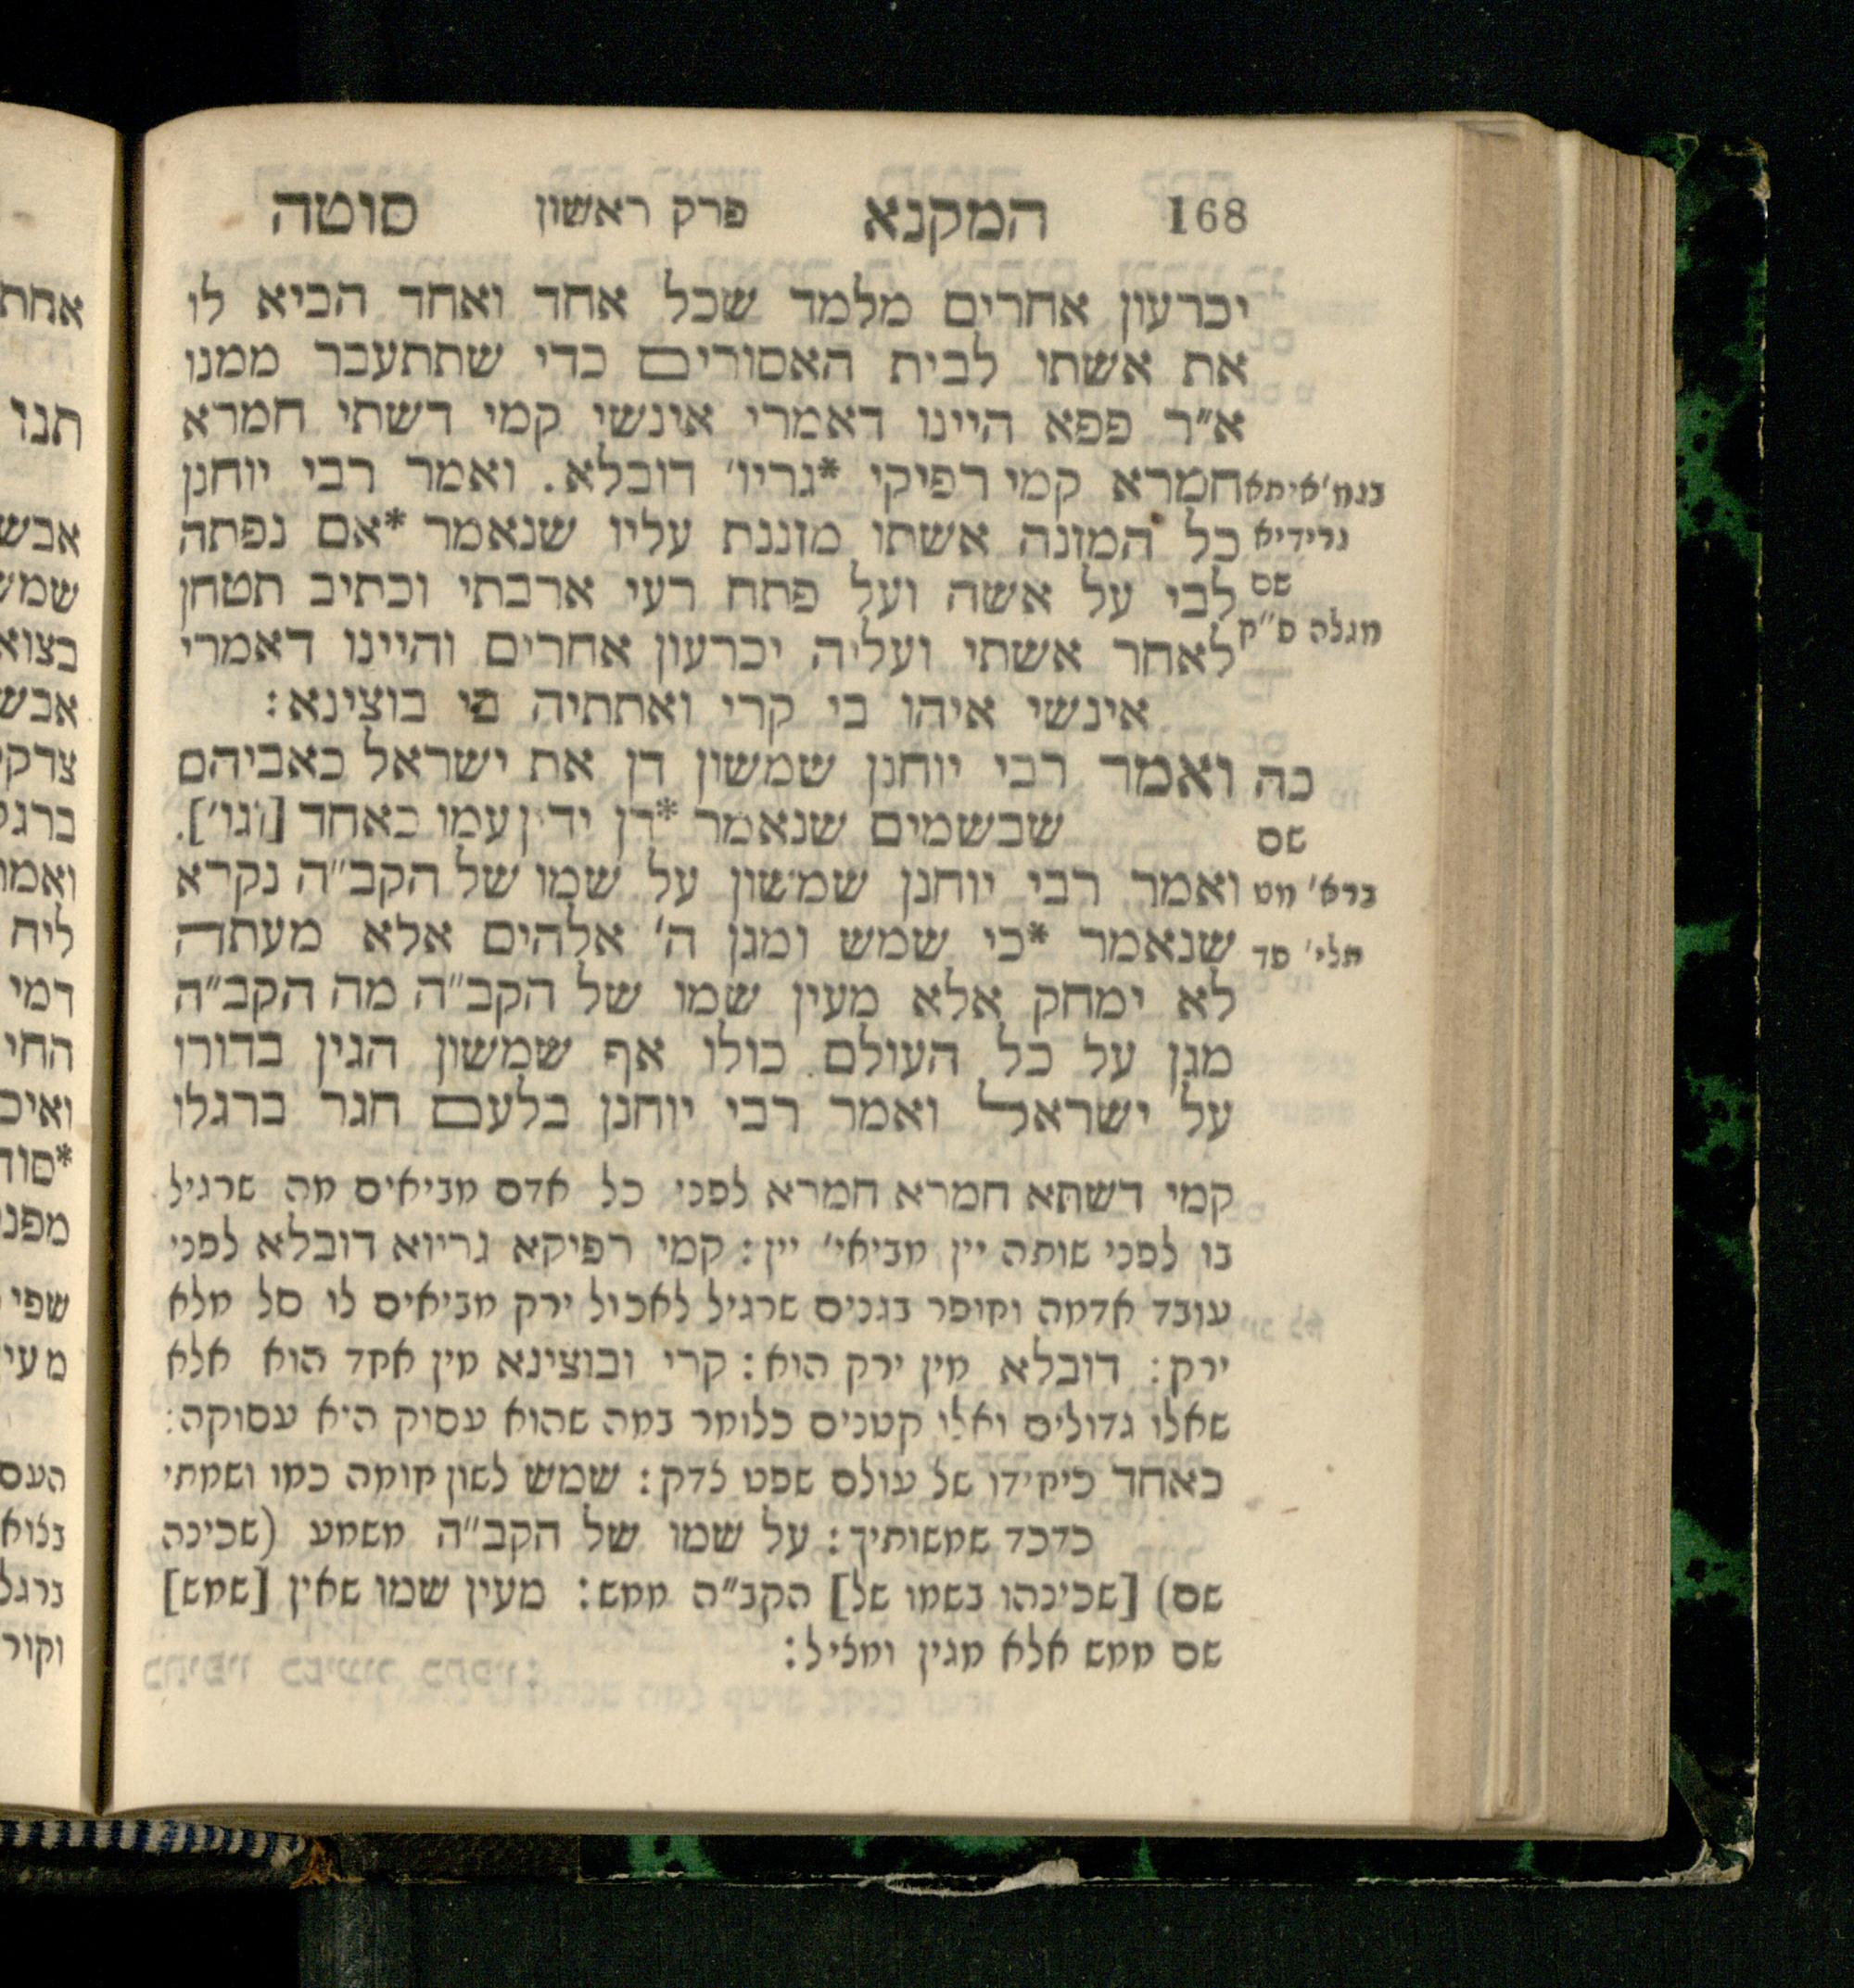 168 המקנא פרק ראשון סוטה
יכרעון אחרים מלמד שכל אחד ואחד הביא לו
את אשתו לבית האסורים כדי שתתעבר ממנו
א״ר פפא היינו דאמרי אינשי קמי דשתי חמרא
בגמ׳ איתא חמרא קמי רפיקי *גריו׳ דובלא. ואמר רבי יוחנן
גרידיא כל המזנה אשתו מזננת עליו שנאמר *אם נפתה
שם לבי על אשה ועל פתח רעי ארבתי וכתיב תטחן
מגלה ס״ק לאחר אשתי ועליה יכרעון אחרים והיינו דאמרי
אינשי איהו בי קרי ואתתיה בי בוצינא:
כה ואמר רבי יוחנן שמשון דן את ישראל כאביהם
שם שבשמים שנאמר *דן ידין עמו כאחד [וגוי׳].
ברא׳ מט ואמר רבי יוחנן שמשון על שמו של הקב״ה נקרא
תלי׳ פד שנאמר *כי שמש ומגן ה׳ אלהים אלא מעתה
לא ימחק אלא מעין שמו של הקב״ה מה הקב״ה
מגן על כל העולם כולו אף שמשון הגין בדורו
על ישראל ואמר רבי יוחנן בלעם חגר ברגלו
קמי דשתא חמרא חמרא לפני כל אדם מביאים מה שרגיל
בו לפני שותה יין מביאי׳ יין: קמי רפיקא גריוא דובלא לפני
עובד אדמה וחופר בגנים שרגיל לאכול ירק מביאים לו סל מלא
ירק: דובלא מין ירק הוא: קרי ובוצינא מין אחד הוא אלא
שאלו גדולים ואלו קטנים כלומר במה שהוא עסוק היא עסוקה:
כאחד כיחידו של עולם שפט צדק: שמש לשון חומה כמו ושמתי
כדכד שמשותיך: על שמו של הקב״ה משמע (שכינה
שם) [שכינהו בשמו של] הקב״ה ממש: מעין שמו שאין [שמש]
שם ממש אלא מגין ומציל:
אחת
תנו
אבש
שמש
בצוא
אבש
צדק
ברגל
ואמר
ליה
דמי
החי
ואיכ
*סוד
מפנ
שפי
מעי
העס
בצוא
ברגל
וקור